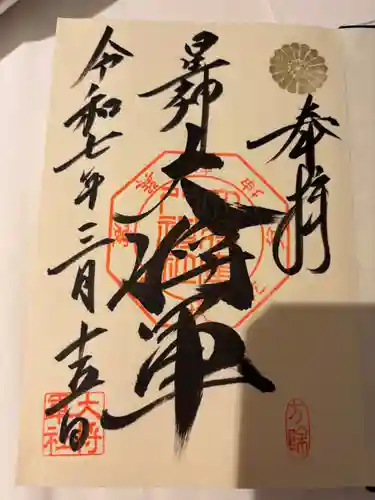 奉拝
星神
大将軍
令和七年三月十五日
大将
軍社
方除